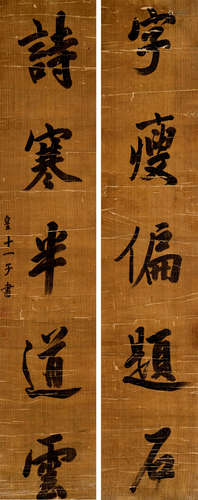 字瘦偏題石
詩寒半道雲
皇十一子書